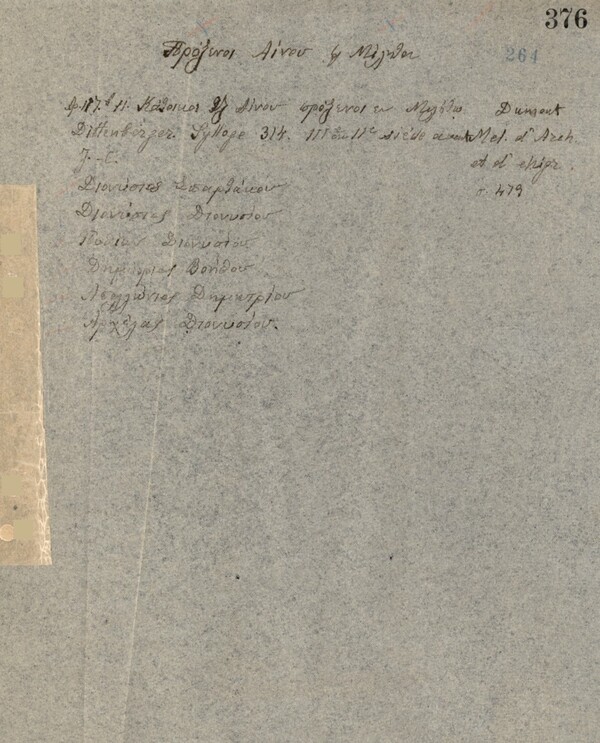 376
Πρόξενοι Αίνου ἐν Μιλήτῳ
264
Αίνου πρόξενοι εν Μιλήτω Dumont
Dittenberger. Sylloge 314. IIIe ou IIe siècle avant Mel. d'Arch.
J.-C. et d'épigr.
σ. 479
Διονύσιος Σπαρτάκου
Διονύσιος Διονυσίου
Διονυσίου
Δημήτριος Βοήθου
Απολλώνιος Δημητρίου
Αρχέλας Διονυσίου.